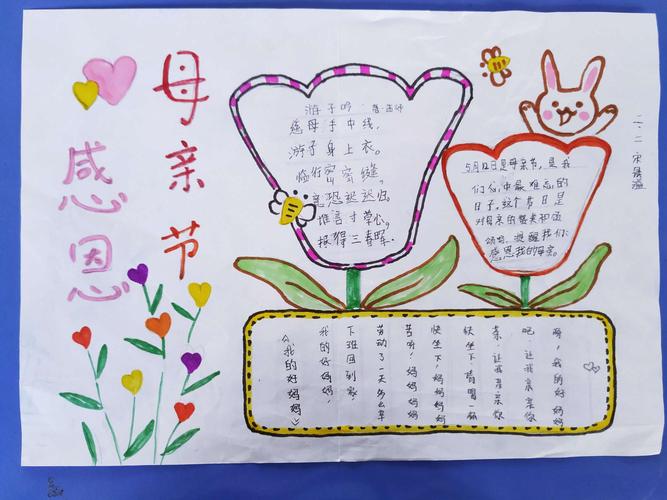 感恩
母亲节
游子吟 唐·孟郊
慈母手中线,
游子身上衣。
临行密密缝,
意恐迟迟归,
谁言寸草心,
报得三春晖.
5月12日是母亲节,是我
们心中最难忘的
日子,这个节日是
对母亲的赞美和活
动、提醒我们
感恩我的母亲。
《我的好妈妈》
我的好妈妈,
下班回到家
劳动了一天多么辛
苦呀!妈妈妈妈
快坐下,妈妈妈妈
快坐下 请喝一杯
茶.让我亲亲你
吧.让我亲亲你
啊,我的好妈妈
二、二 宋